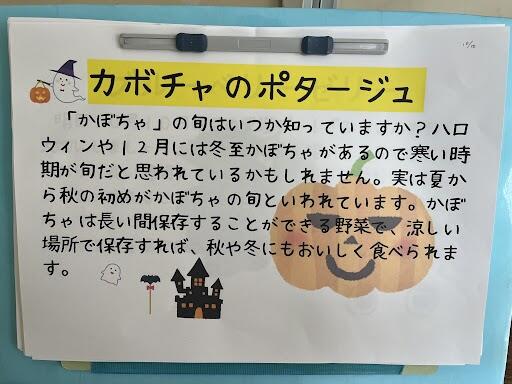 カボチャのポタージュ
「かぼちゃ」の旬はいつか知っていますか？ハロ
ウィンや１２月には冬至かぼちゃがあるので寒い時
期が旬だと思われているかもしれません。実は夏か
ら秋の初めがかぼちゃの旬といわれています。かぼ
ちゃは長い間保存することができる野菜で、涼しい
場所で保存すれば、秋や冬にもおいしく食べられま
す。